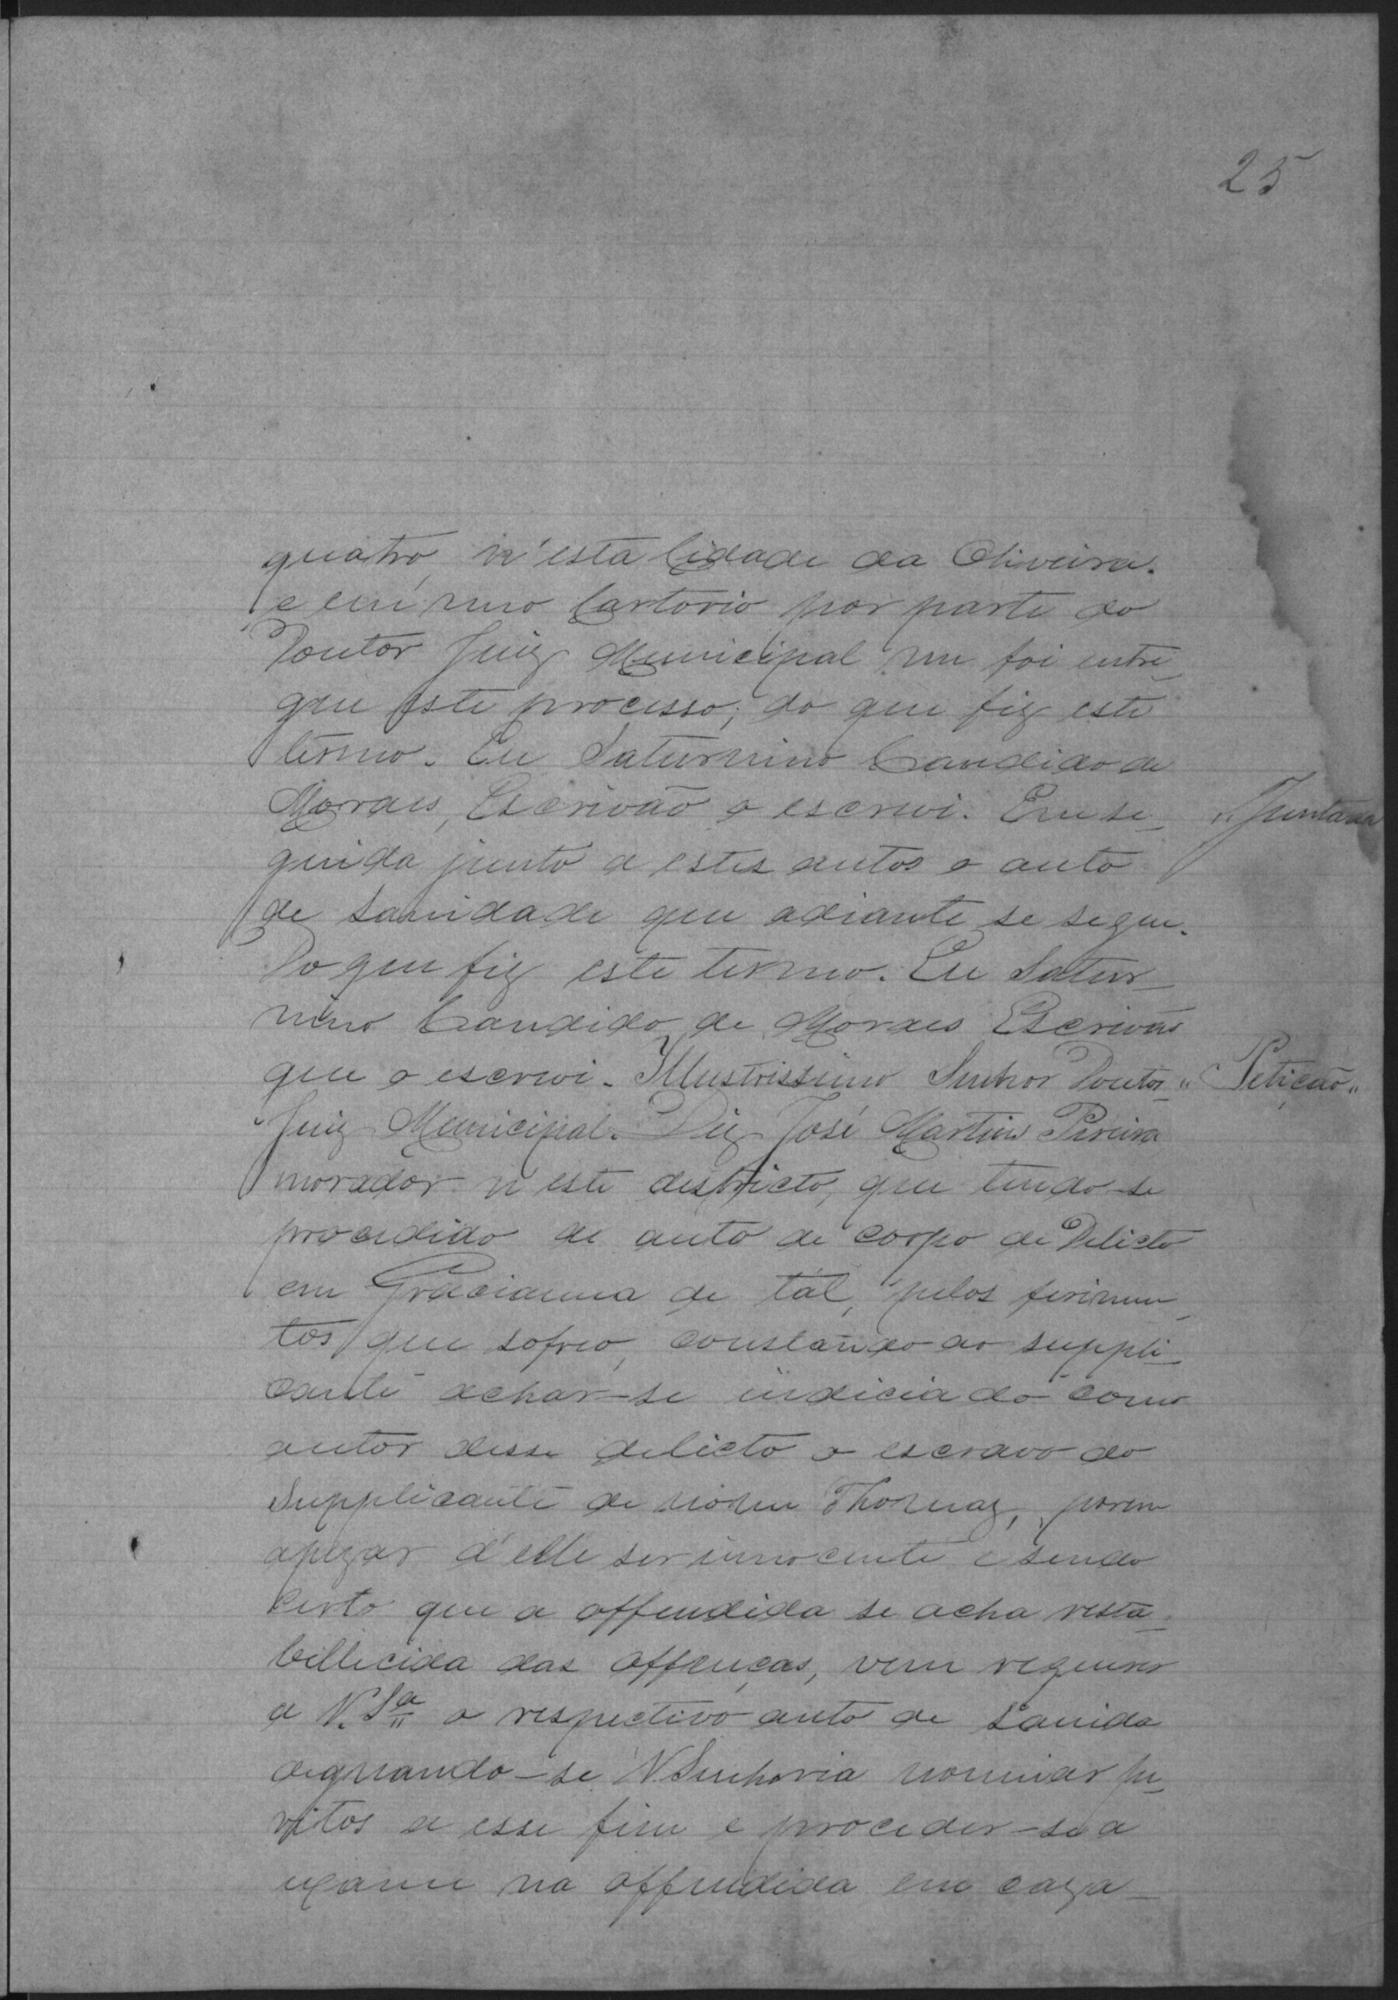 25
quatro, n'esta Cidade da Oliveira.
e em meo Cartorio por parte do
Doutor Juiz Municipal me foi entre_
gue este processo; do que fiz este
termo. Eu Saturnino Candido de
Moraes, Escrivão o escrevi. Em se_
"Juntada
guida junto a estes autos o auto
de sanidade que adiante se segue.
Do que fiz este termo. Eu Satur_
nino Candido de Moraes Escrivão
que o escrevi. Illustrissimo Senhor Doutor
"Petição"
Juiz Municipal. Diz José Martins Pereira
morador n'este districto, que tendo-se
procedido de auto de corpo de Delicto
em Gracianna de tál, pelos ferimen_
tos que sofreo, constando ao suppli_
cante achar-se indiciado como
autor desse delicto o escravo do
Supplicante de nome Thomaz, porem
apezar d'elle ser innocente e sendo
certo que a offendida se acha resta_
billecida das offenças, vem requerer
a V. Sª o respectivo auto de sanida
dignando-se V Senhoria nomear pe_
ritos a esse fim e proceder-se a
exame na offendida em caza_